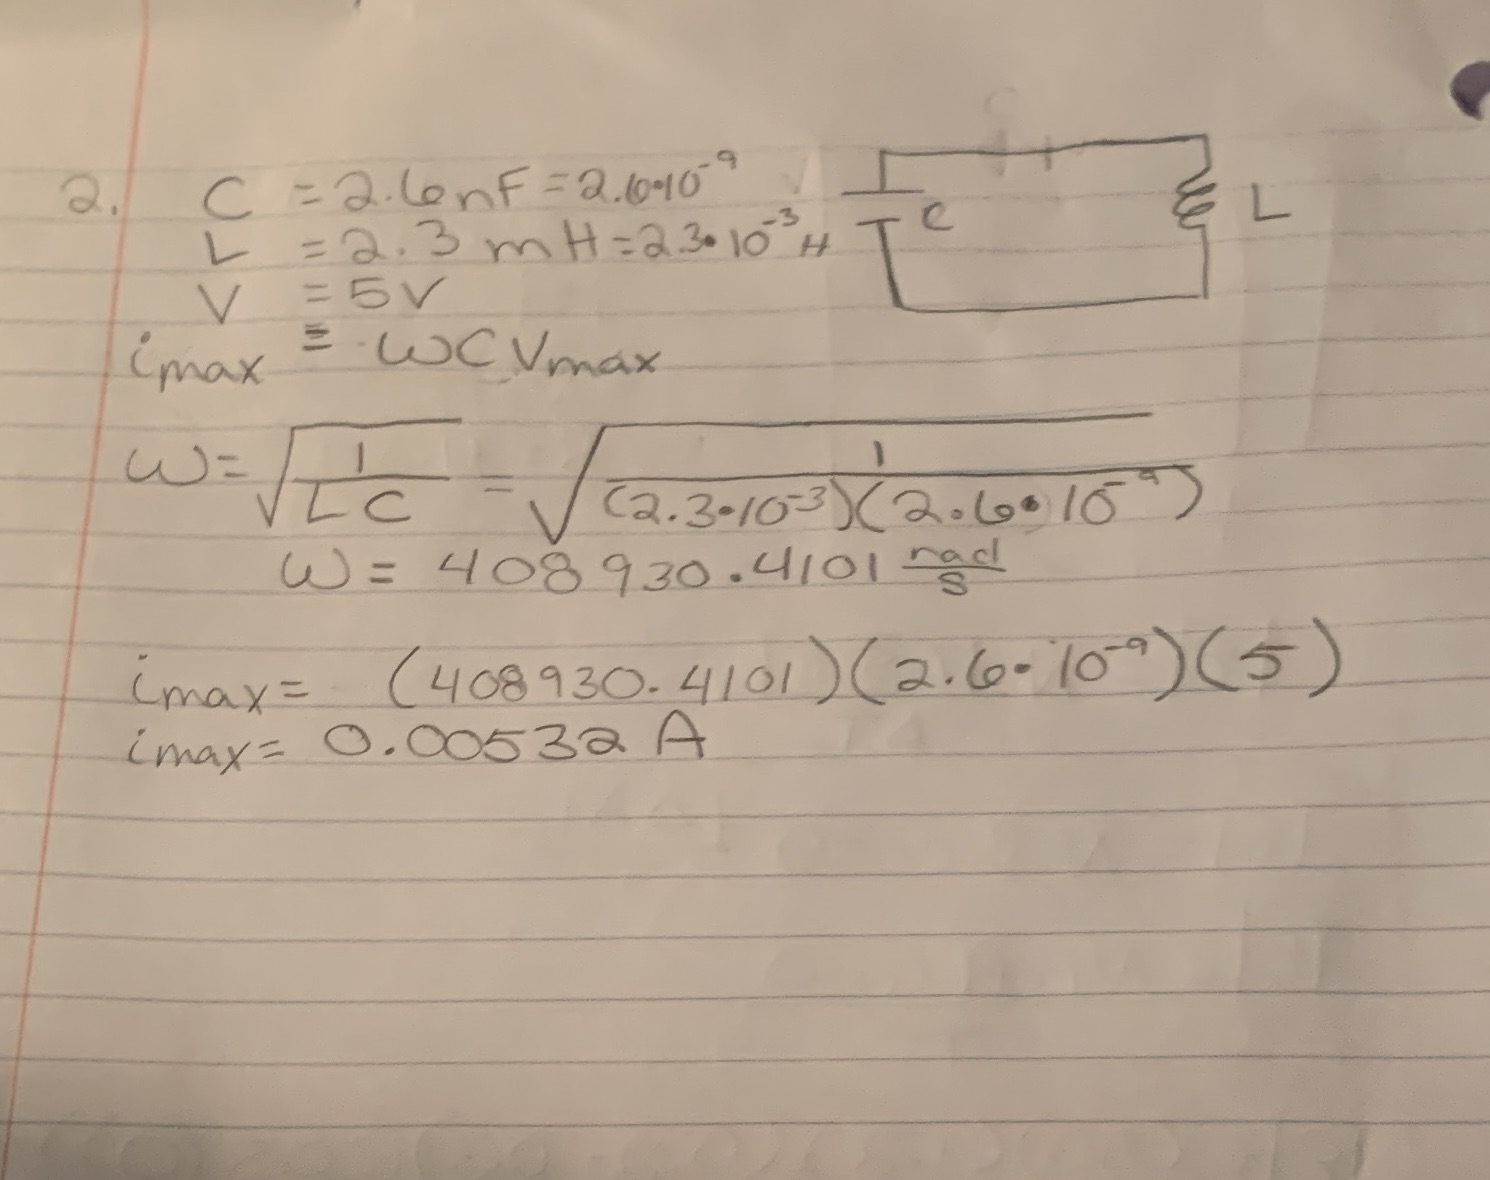 2. C = 2.6nF = 2.6•10⁻⁹
L = 2.3 mH = 2.3•10⁻³ H
V = 5V
imax = ωCVmax
C
L
ω = √(1/LC) = √(1/(2.3•10⁻³)(2.6•10⁻⁹))
ω = 408930.4101 rad/s
imax = (408930.4101)(2.6•10⁻⁹)(5)
imax = 0.00532 A